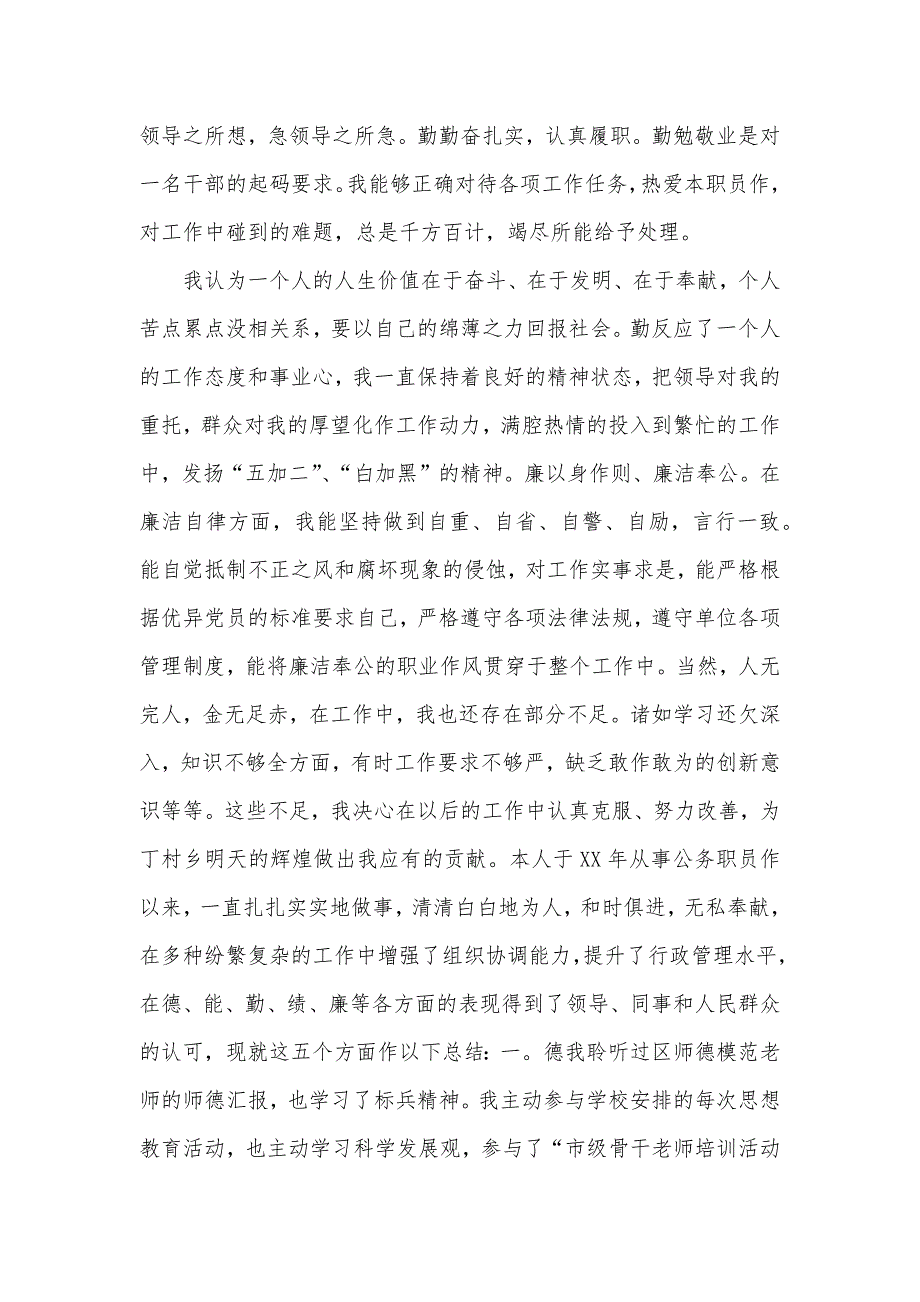 领导之所想，急领导之所急。勤勤奋扎实，认真履职。勤勉敬业是对
一名干部的起码要求。我能够正确对待各项工作任务，热爱本职员作，
对工作中碰到的难题，总是千方百计，竭尽所能给予处理。
我认为一个人的人生价值在于奋斗、在于发明、在于奉献，个人
苦点累点没相关系，要以自己的绵薄之力回报社会。勤反应了一个人
的工作态度和事业心，我一直保持着良好的精神状态，把领导对我的
重托，群众对我的厚望化作工作动力，满腔热情的投入到繁忙的工作
中，发扬“五加二”、“白加黑”的精神。廉以身作则、廉洁奉公。在
廉洁自律方面，我能坚持做到自重、自省、自警、自励，言行一致。
能自觉抵制不正之风和腐坏现象的侵蚀，对工作实事求是，能严格根
据优异党员的标准要求自己，严格遵守各项法律法规，遵守单位各项
管理制度，能将廉洁奉公的职业作风贯穿于整个工作中。当然，人无
完人，金无足赤，在工作中，我也还存在部分不足。诸如学习还欠深
入，知识不够全方面，有时工作要求不够严，缺乏敢作敢为的创新意
识等等。这些不足，我决心在以后的工作中认真克服、努力改善，为
丁村乡明天的辉煌做出我应有的贡献。本人于 XX 年从事公务职员作
以来，一直扎扎实实地做事，清清白白地为人，和时俱进，无私奉献，
在多种纷繁复杂的工作中增强了组织协调能力，提升了行政管理水平，
在德、能、勤、绩、廉等各方面的表现得到了领导、同事和人民群众
的认可，现就这五个方面作以下总结：一。德我聆听过区师德模范老
师的师德汇报，也学习了标兵精神。我主动参与学校安排的每次思想
教育活动，也主动学习科学发展观，参与了“市级骨干老师培训活动